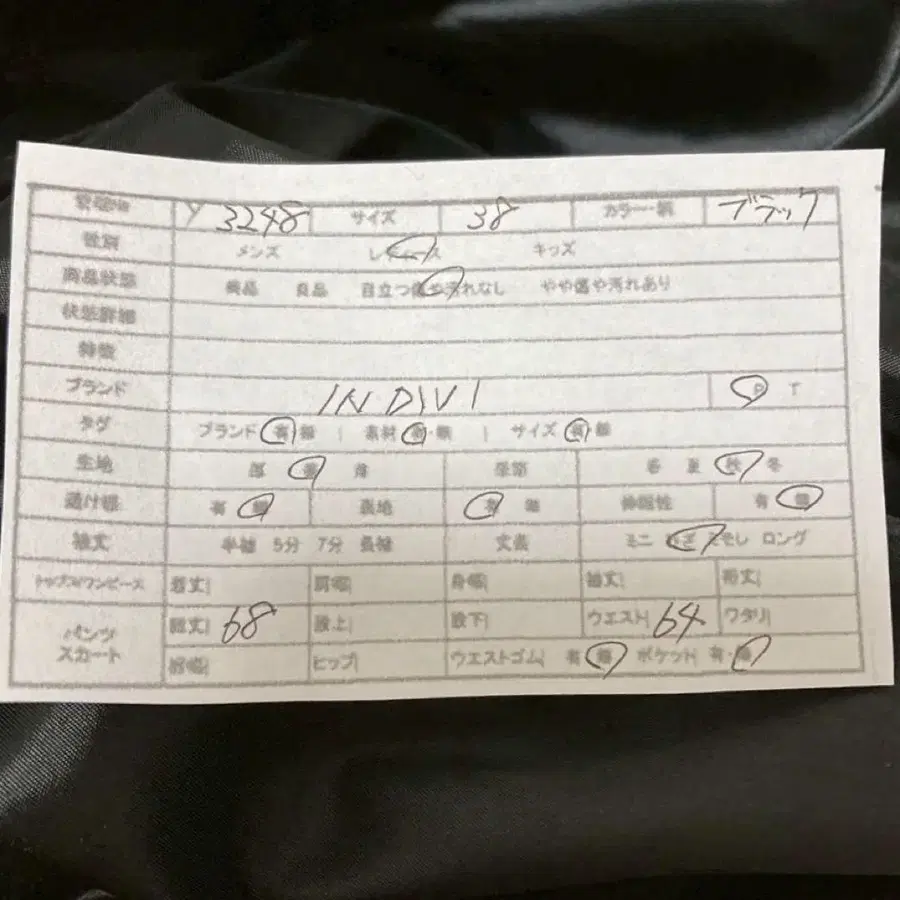 管理No Y 3248 サイズ 38 カラー・柄 ブラック
性別 メンズ レディース キッズ
商品状態 美品 良品 目立つ傷や汚れなし やや傷や汚れあり
状態詳細
特徴
ブランド INDIVI P T
タグ ブランド 有・無 | 素材 有・無 | サイズ 有・無
生地 厚 普 薄 季節 春 夏 秋 冬
透け感 有 無 裏地 有 無 伸縮性 有 無
袖丈 半袖 5分 7分 長袖 丈長 ミニ ひざ ミモレ ロング
トップス/ワンピース 着丈| 肩幅| 身幅| 袖丈| 裄丈|
パンツ スカート 総丈| 68 股上| 股下| ウエスト| 64 ワタリ|
裾幅| ヒップ| ウエストゴム| 有・無 ポケット| 有・無